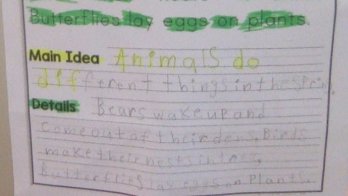 Butterflies lay eggs on plants.
Main Idea Animals do
different things in the Sprin
Details Bears wake up and
come out of their dens. Birds
make their nests in trees.
Butterflies lay eggs on Plants.